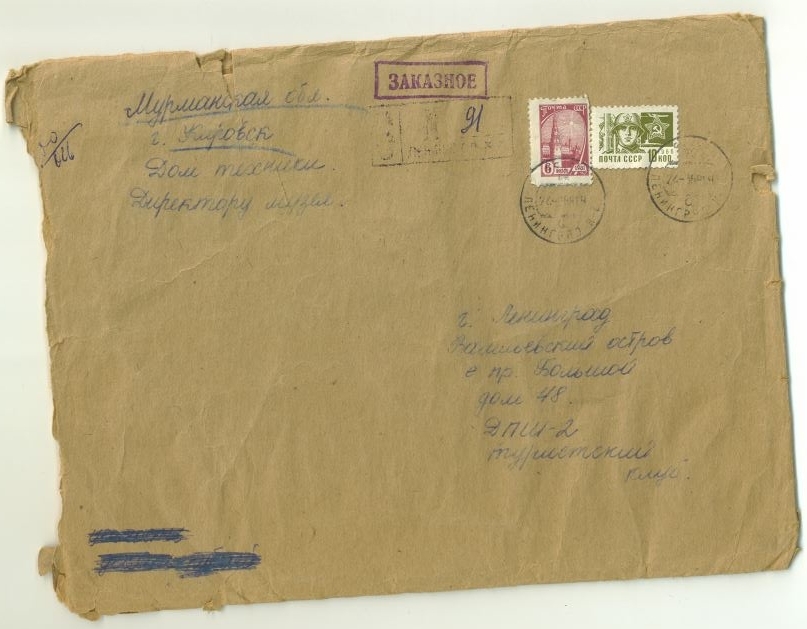 ЗАКАЗНОЕ
Мурманская обл.
г. Кировск
Дом техники.
Директору музея.
91
ПОЧТА СССР
6
ПОЧТА СССР 10 КОП
ЛЕНИНГРАД
ЛЕНИНГРАД
г. Ленинград
остров
пр. Большой
дом 48.
ДПШ-2
туристский
клуб.